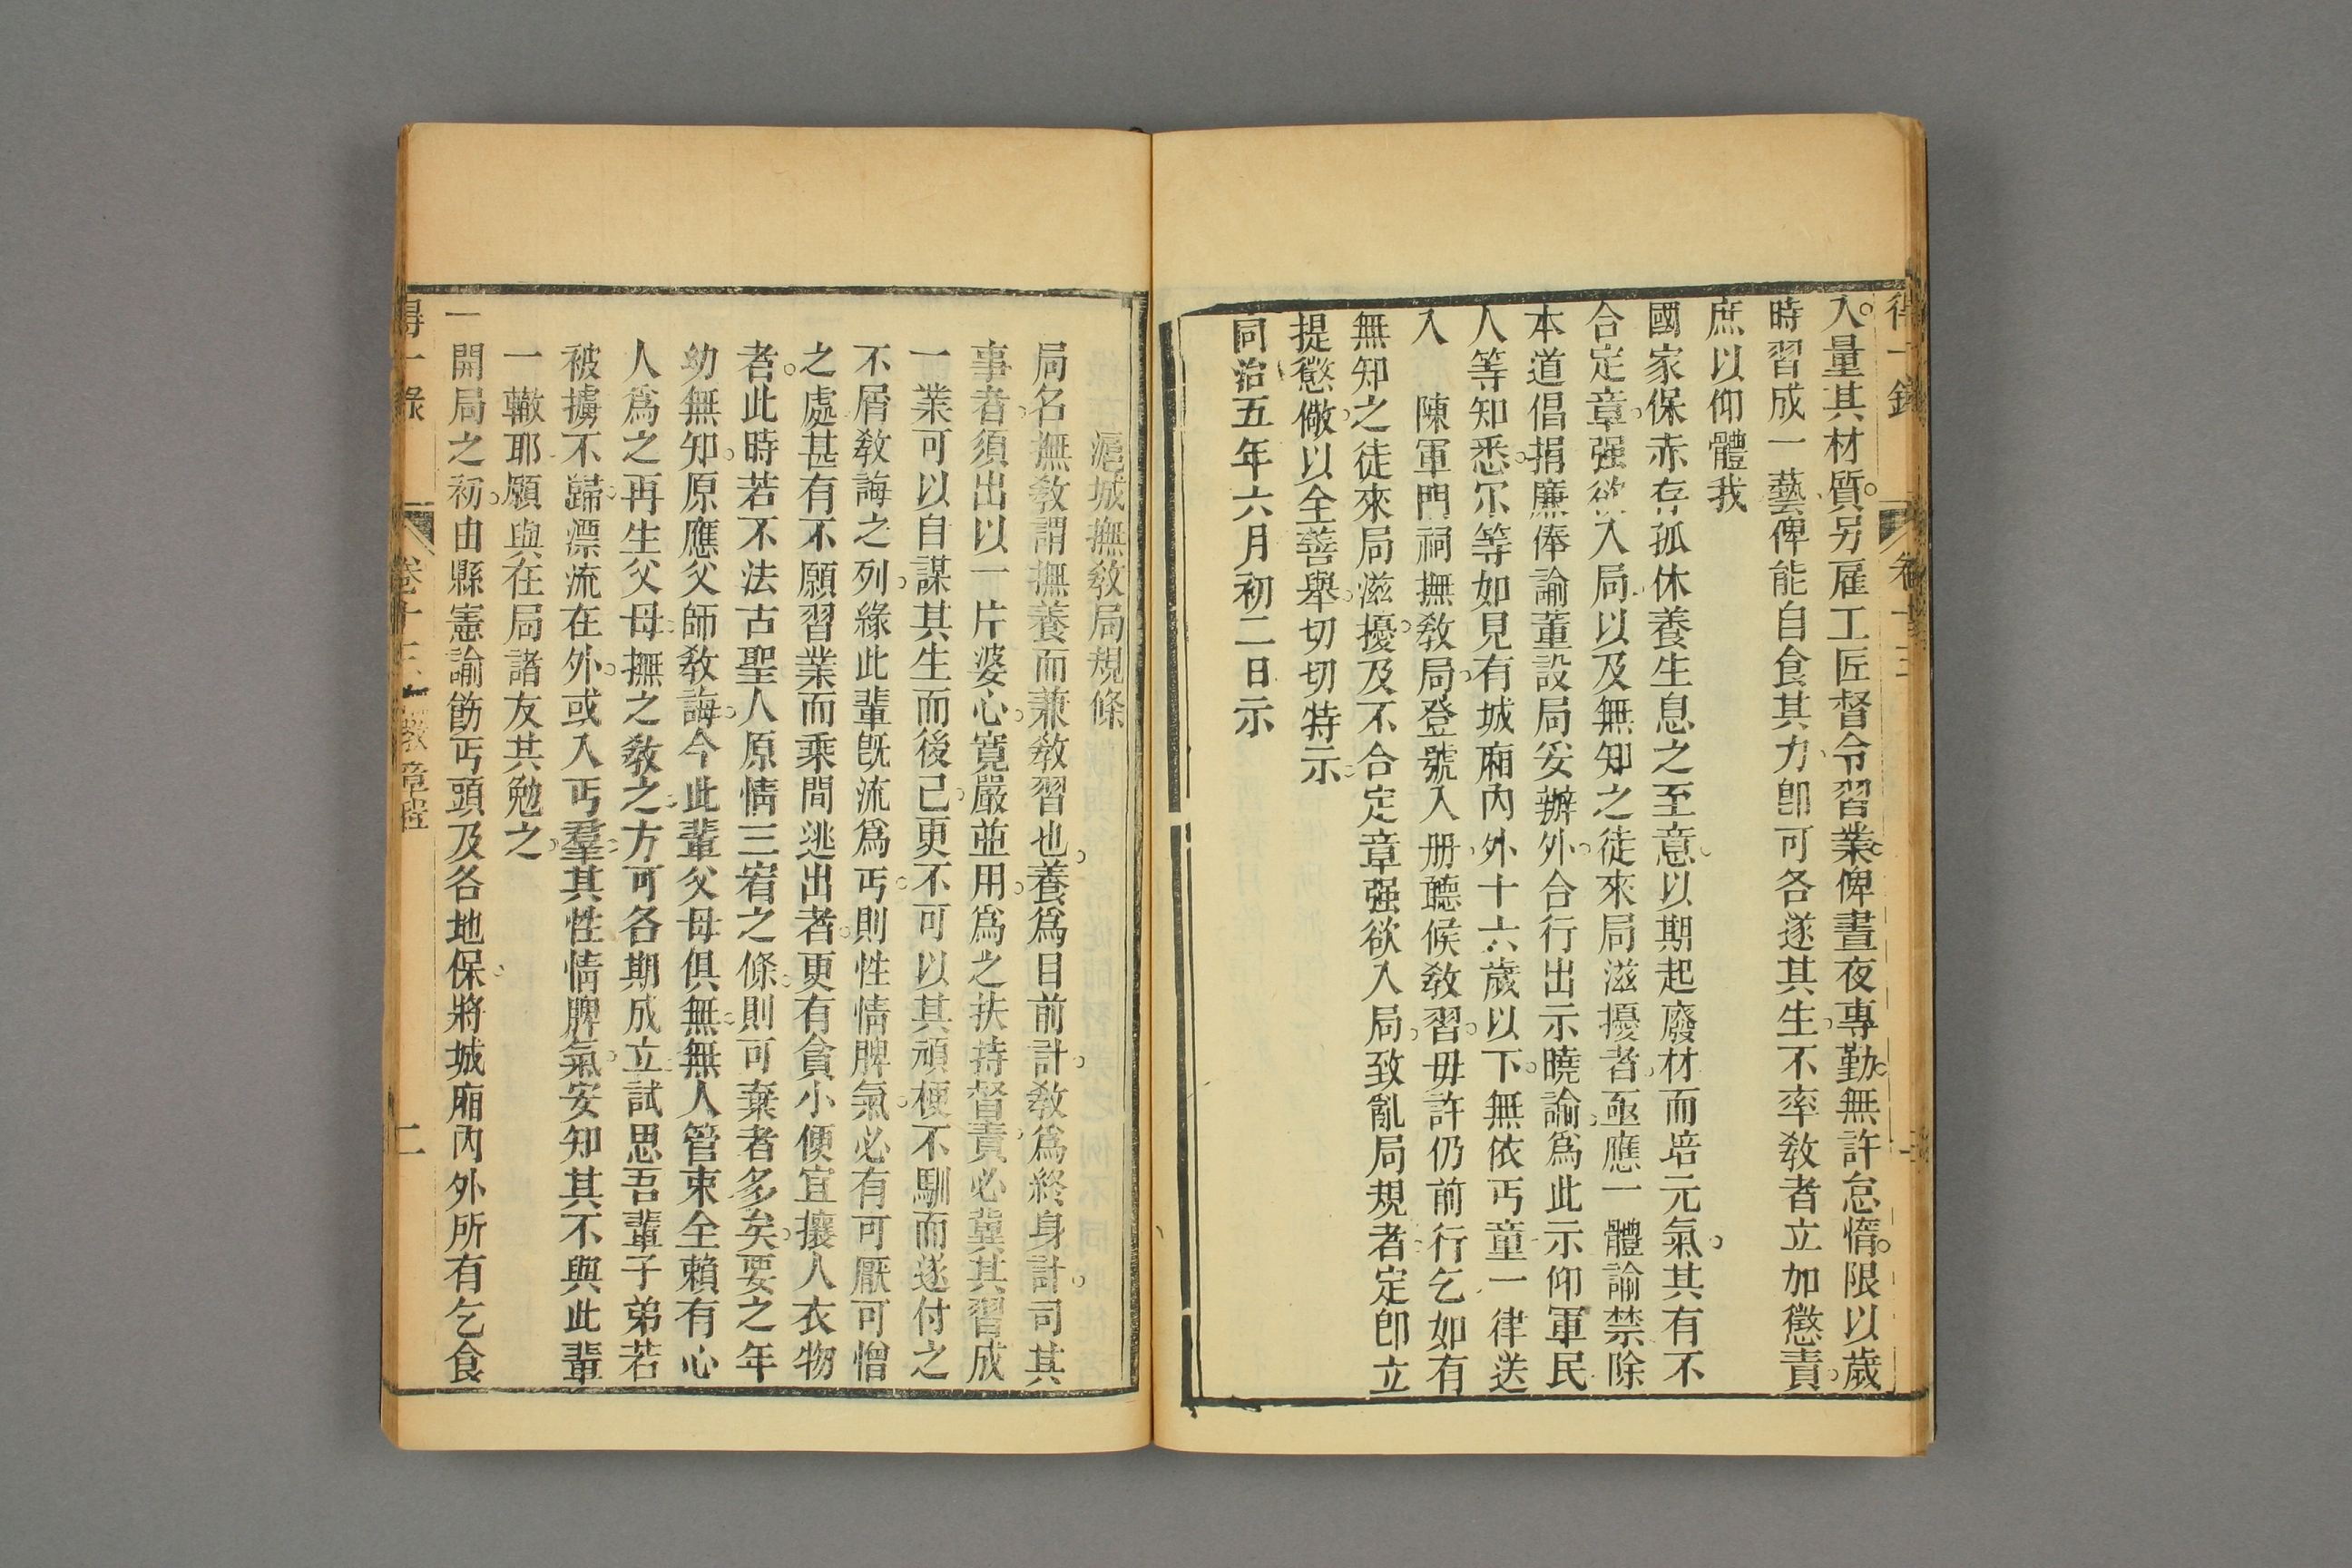 得一錄 卷十三
入量其材質另雇工匠督令習業俾晝夜專勤無許怠惰限以歲
時習成一藝俾能自食其力卽可各遂其生不率敎者立加懲責
庶以仰體我
國家保赤存孤休養生息之至意以期起廢材而培元氣其有不
合定章强欲入局以及無知之徒來局滋擾者亟應一體諭禁除
本道倡捐廉俸諭董設局妥辦外合行出示曉諭爲此示仰軍民
人等知悉尔等如見有城廂內外十六歲以下無依丐童一律送
入 陳軍門祠撫敎局登號入册聽候敎習毋許仍前行乞如有
無知之徒來局滋擾及不合定章强欲入局致亂局規者定卽立
提懲儆以全善舉切切特示
同治五年六月初二日示
滬城撫敎局規條
局名撫敎謂撫養而兼敎習也養爲目前計敎爲終身計司其
事者須出以一片婆心寬嚴並用爲之扶持督責必冀其習成
一業可以自謀其生而後已更不可以其頑梗不馴而遂付之
不屑敎誨之列緣此輩旣流爲丐則性情脾氣必有可厭可憎
之處甚有不願習業而乘間逃出者更有貪小便宜攘人衣物
者此時若不法古聖人原情三宥之條則可棄者多矣要之年
幼無知原應父師敎誨今此輩父母俱無無人管束全賴有心
人爲之再生父母撫之敎之方可各期成立試思吾輩子弟若
被擄不歸漂流在外或入丐羣其性情脾氣安知其不與此輩
一轍耶願與在局諸友共勉之
一開局之初由縣憲諭飭丐頭及各地保將城廂內外所有乞食
得一錄 卷十三 敎章程 二